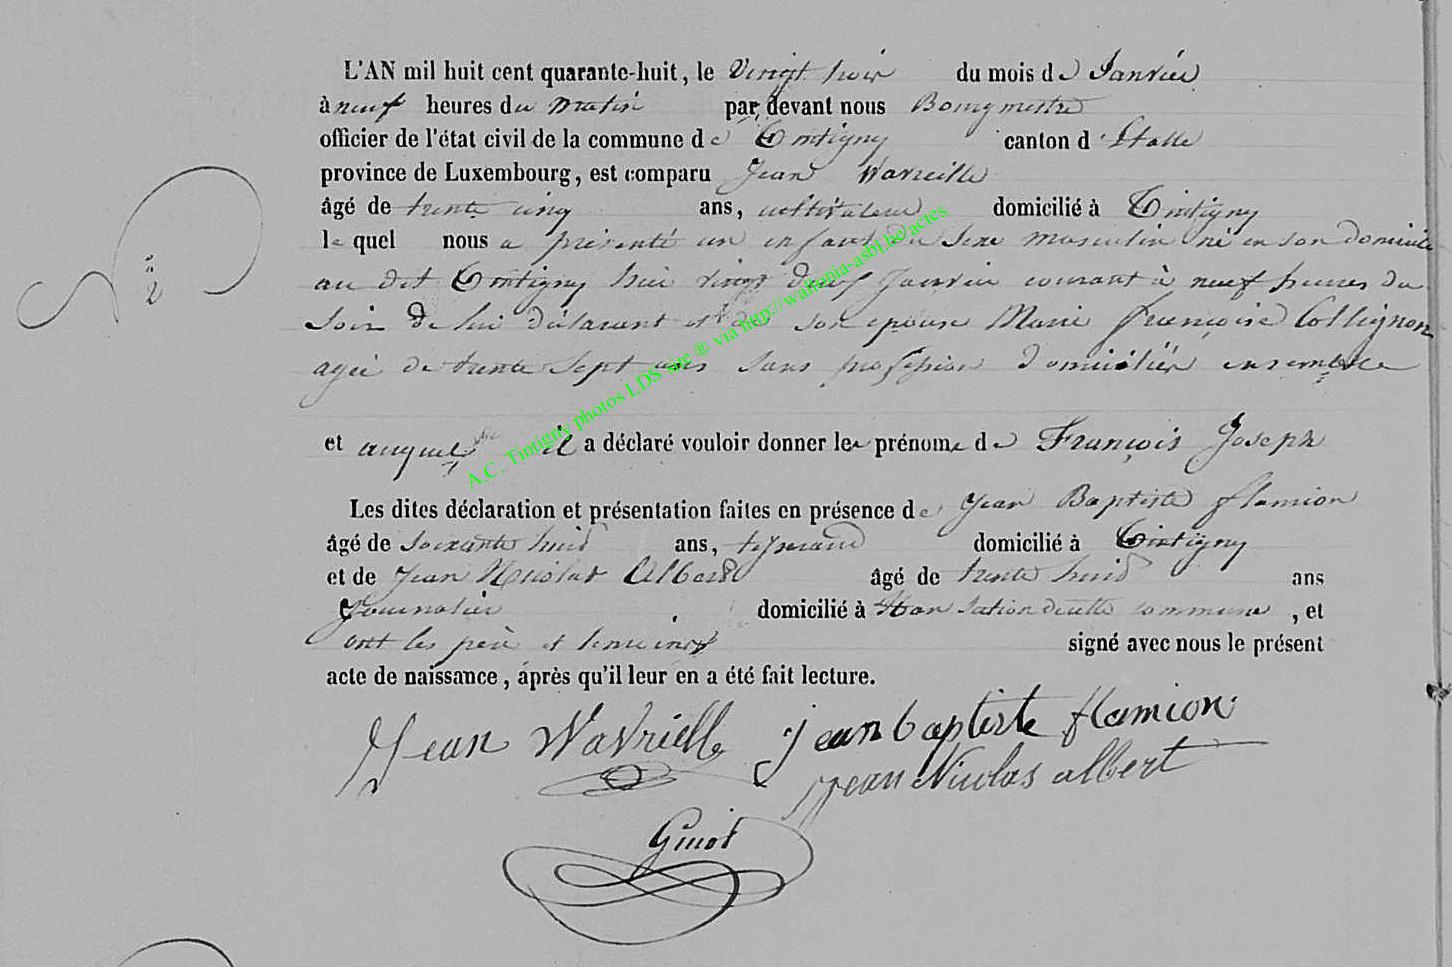 L'AN mil huit cent quarante-huit, le Vingt trois du mois de Janvier
à neuf heures du matin par devant nous Bourgmestre
officier de l'état civil de la commune de Tintigny canton d'Etalle
province de Luxembourg, est comparu Jean Wavreille
âgé de trente cinq ans, cultivateur domicilié à Tintigny
lequel nous a présenté un enfant du sexe masculin né en son domicile
au dit Tintigny hier vingt deux Janvier courant à neuf heures du
soir de lui déclarant et de son epouse Marie françoise Collignon
agée de trente sept ans sans profession domiciliés ensemble
N°
2
et auquel il a déclaré vouloir donner les prénoms de François Joseph
Les dites déclaration et présentation faites en présence de Jean Baptiste flamion
âgé de soixante huit ans, tisserand domicilié à Tintigny
et de Jean Nicolas Albert âgé de trente huit ans
Journalier domicilié à Han section de cette commune, et
ont les père et temoins signé avec nous le présent
acte de naissance, après qu'il leur en a été fait lecture.
Jean WaVrielle jean baptiste flamion
jean Nicolas albert
Guiot
A.C. Tintigny photos LDS site ® via http://wallonia-asbl.be/actes